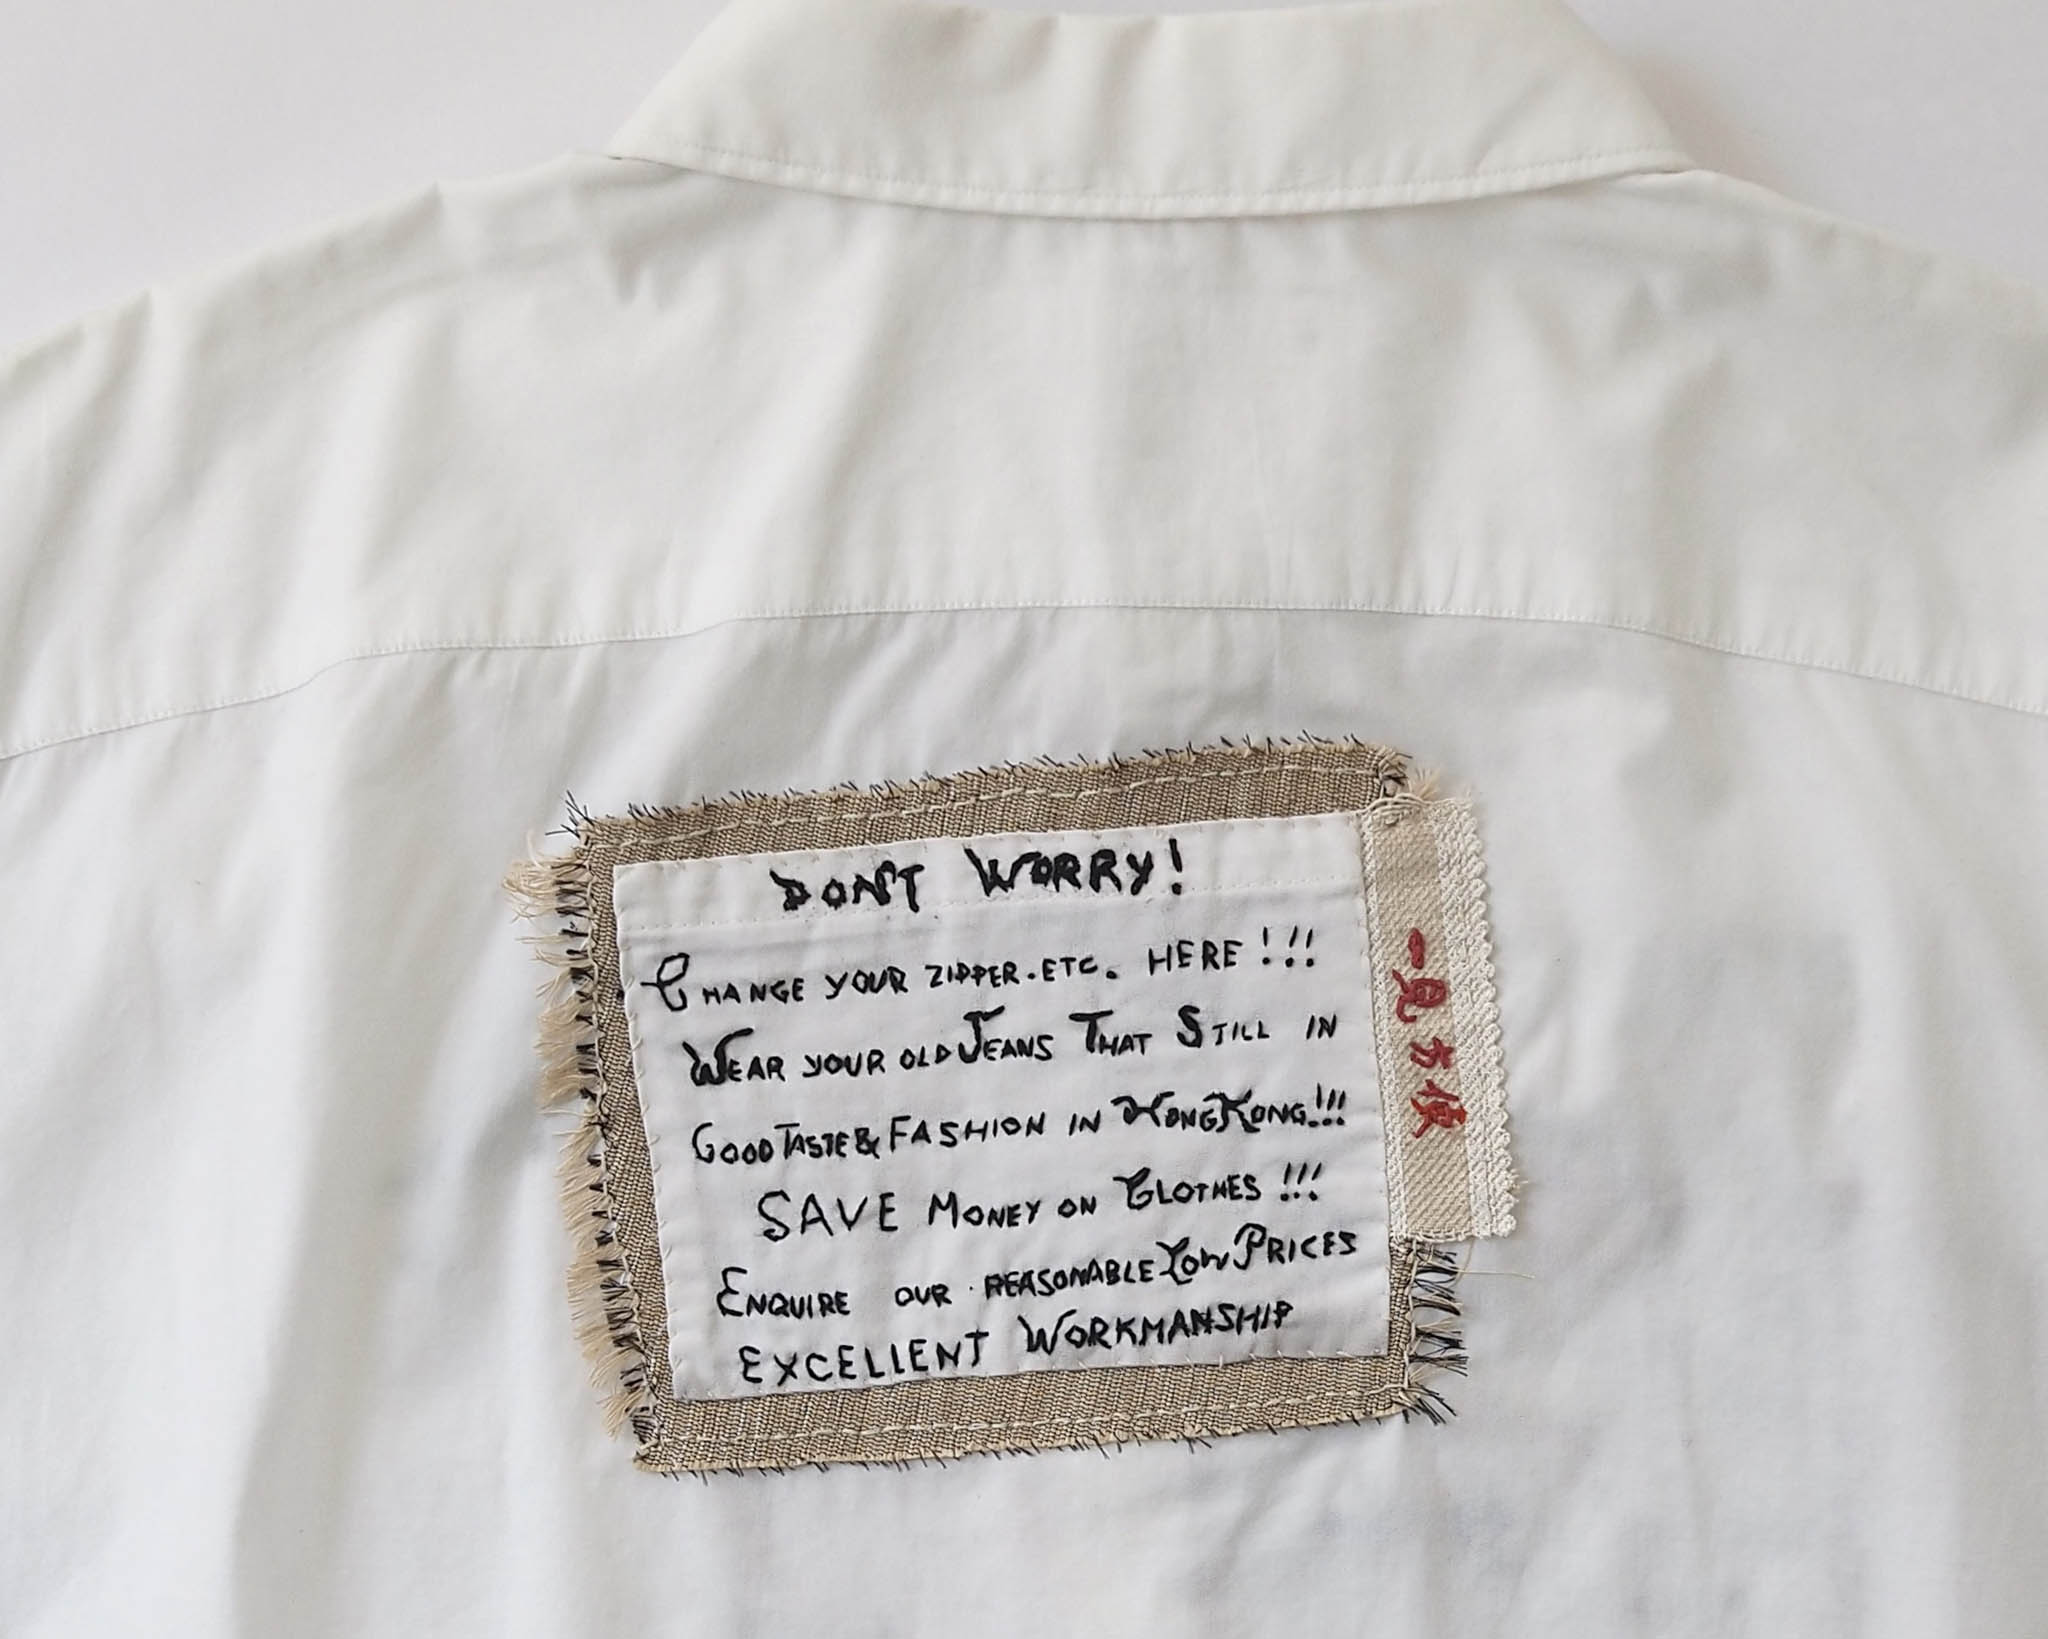 DON'T WORRY!
CHANGE YOUR ZIPPER.ETC. HERE!!!
WEAR YOUR OLD JEANS THAT STILL IN
GOOD TASTE & FASHION IN HONG KONG!!!
SAVE MONEY ON CLOTHES!!!
ENQUIRE OUR REASONABLE LOW PRICES
EXCELLENT WORKMANSHIP
一見方便